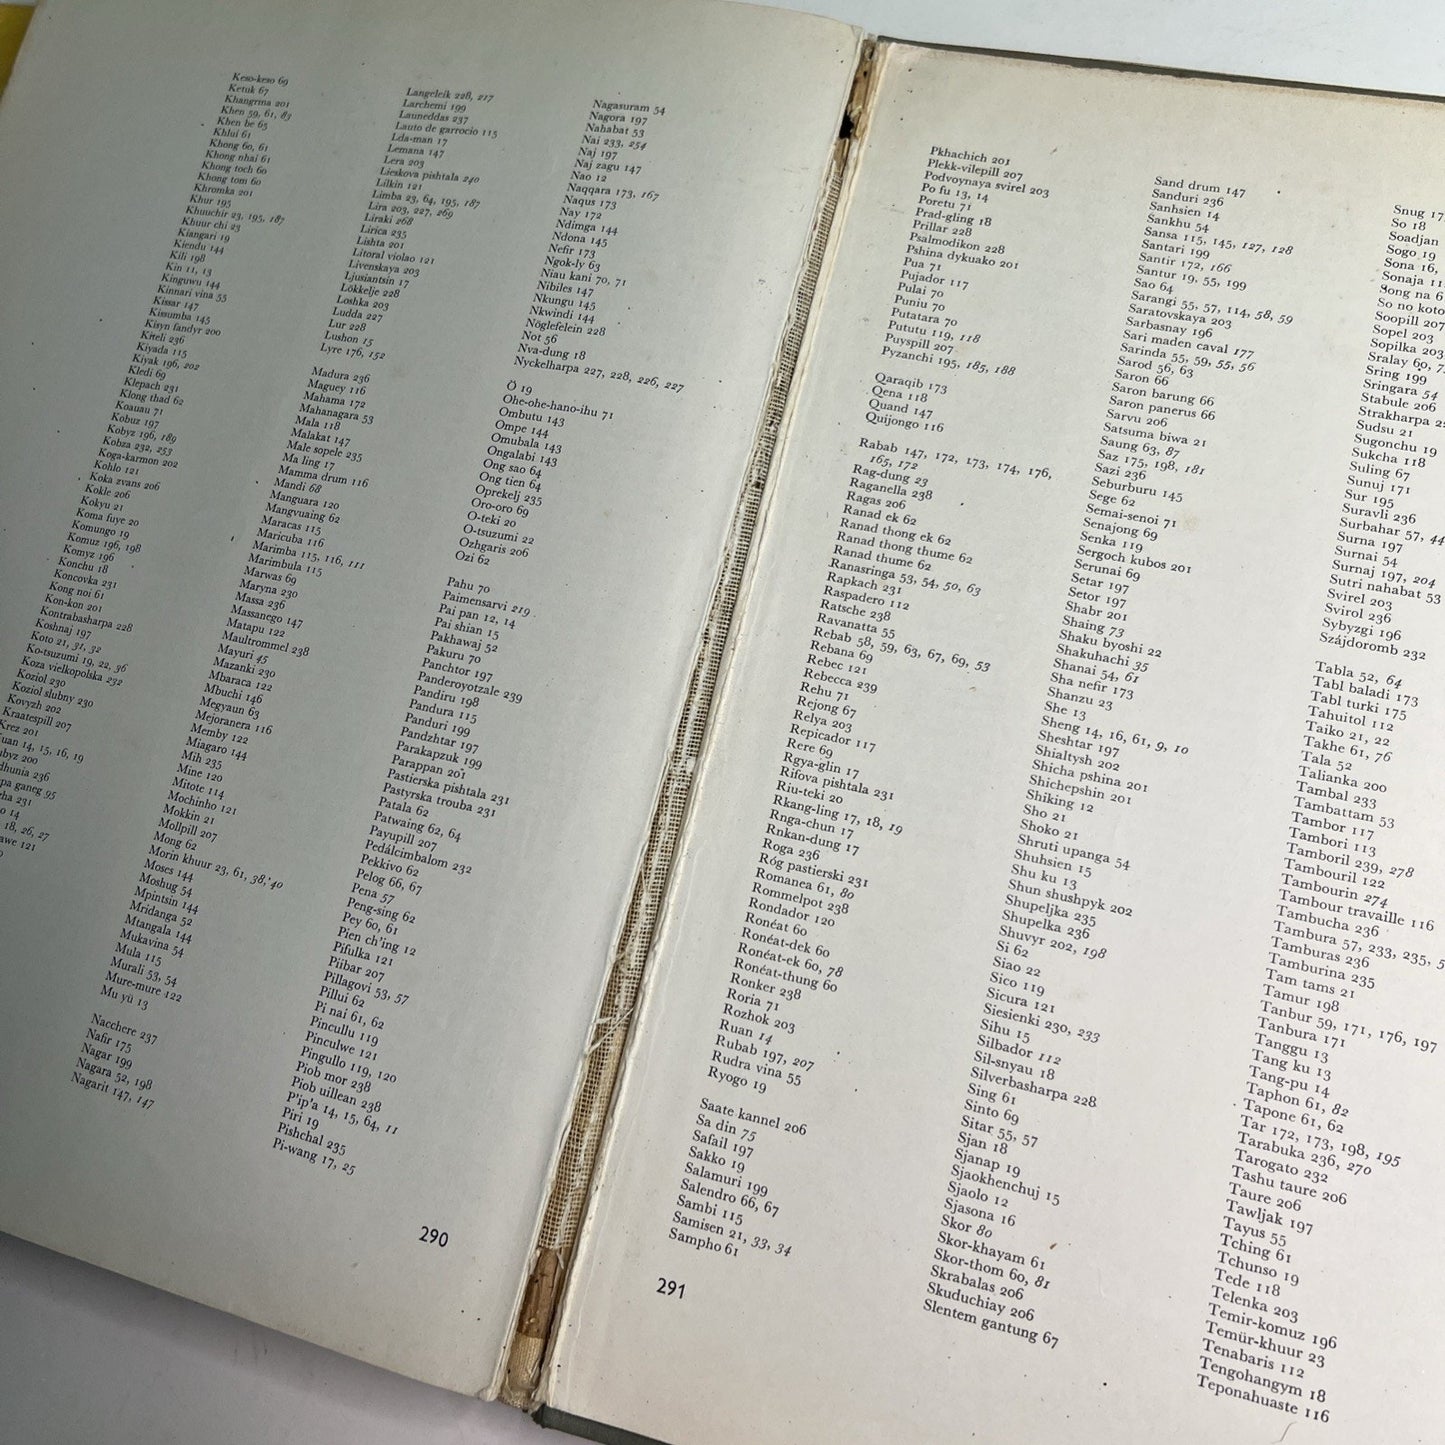 Keso-keso 69
Ketuk 67
Khangrma 201
Khen 59, 61, 83
Khen be 65
Khlui 61
Khong 60, 61
Khong nhai 61
Khong toch 60
Khong tom 60
Khromka 201
Khur 195
Khuuchir 23, 195, 187
Khuur chi 23
Kiangari 19
Kiendu 144
Kili 198
Kin 11, 13
Kinguwu 144
Kinnari vina 55
Kissar 147
Kissumba 145
Kisyn fandyr 200
Kiteli 236
Kiyada 115
Kiyak 196, 202
Kledi 69
Klepach 231
Klong thad 62
Koauau 71
Kobuz 197
Kobyz 196, 189
Kobza 232, 253
Koga-karmon 202
Kohlo 121
Koka zvans 206
Kokle 206
Kokyu 21
Koma fuye 20
Komungo 19
Komuz 196, 198
Komyz 196
Konchu 18
Koncovka 231
Kong noi 61
Kon-kon 201
Kontrabasharpa 228
Koshnaj 197
Koto 21, 31, 32
Ko-tsuzumi 19, 22, 36
Koza vielkopolska 232
Koziol 230
Koziol slubny 230
Kovyzh 202
Kraatespill 207
Krez 201
uan 14, 15, 16, 19
ubyz 200
dhunia 236
pa ganeg 95
rha 231
o 14
18, 26, 27
awe 121
Langeleik 228, 217
Larchemi 199
Launeddas 237
Lauto de garrocio 115
Lda-man 17
Lemana 147
Lera 203
Lieskova pishtala 240
Lilkin 121
Limba 23, 64, 195, 187
Lira 203, 227, 269
Liraki 268
Lirica 235
Lishta 201
Litoral violao 121
Livenskaya 203
Ljusiantsin 17
Lökkelje 228
Loshka 203
Ludda 227
Lur 228
Lushon 15
Lyre 176, 152
Madura 236
Maguey 116
Mahama 172
Mahanagara 53
Mala 118
Malakat 147
Male sopele 235
Ma ling 17
Mamma drum 116
Mandi 68
Manguara 120
Mangvuaing 62
Maracas 115
Maricuba 116
Marimba 115, 116, 111
Marimbula 115
Marwas 69
Maryna 230
Massa 236
Massanego 147
Matapu 122
Maultrommel 238
Mayuri 45
Mazanki 230
Mbaraca 122
Mbuchi 146
Megyaun 63
Mejoranera 116
Memby 122
Miagaro 144
Mih 235
Mine 120
Mitote 114
Mochinho 121
Mokkin 21
Mollpill 207
Mong 62
Morin khuur 23, 61, 38, 40
Moses 144
Moshug 54
Mpintsin 144
Mridanga 52
Mtangala 144
Mukavina 54
Mula 115
Murali 53, 54
Mure-mure 122
Mu yü 13
Nacchere 237
Nafir 175
Nagar 199
Nagara 52, 198
Nagarit 147, 147
Nagasuram 54
Nagora 197
Nahabat 53
Nai 233, 254
Naj 197
Naj zagu 147
Nao 12
Naqqara 173, 167
Naqus 173
Nay 172
Ndimga 144
Ndona 145
Nefir 173
Ngok-ly 63
Niau kani 70, 71
Nibiles 147
Nkungu 145
Nkwindi 144
Nöglefelein 228
Not 56
Nva-dung 18
Nyckelharpa 227, 228, 226, 227
Ö 19
Ohe-ohe-hano-ihu 71
Ombutu 143
Ompe 144
Omubala 143
Ongalabi 143
Ong sao 64
Ong tien 64
Oprekelj 235
Oro-oro 69
O-teki 20
O-tsuzumi 22
Ozhgaris 206
Ozi 62
Pahu 70
Paimensarvi 219
Pai pan 12, 14
Pai shian 15
Pakhawaj 52
Pakuru 70
Panchtor 197
Panderoyotzale 239
Pandiru 198
Pandura 115
Panduri 199
Pandzhtar 197
Parakapzuk 199
Parappan 201
Pastierska pishtala 231
Pastyrska trouba 231
Patala 62
Patwaing 62, 64
Payupill 207
Pedálcimbalom 232
Pekkivo 62
Pelog 66, 67
Pena 57
Peng-sing 62
Pey 60, 61
Pien ch'ing 12
Pifulka 121
Piibar 207
Pillagovi 53, 57
Pillui 62
Pi nai 61, 62
Pincullu 119
Pinculwe 121
Pingullo 119, 120
Piob mor 238
Piob uillean 238
P'ip'a 14, 15, 64, 11
Piri 19
Pishchal 235
Pi-wang 17, 25
290
Pkhachich 201
Plekk-vilepill 207
Podvoynaya svirel 203
Po fu 13, 14
Poretu 71
Prad-gling 18
Prillar 228
Psalmodikon 228
Pshina dykuako 201
Pua 71
Pujador 117
Pulai 70
Puniu 70
Putatara 70
Pututu 119, 118
Puyspill 207
Pyzanchi 195, 185, 188
Qaraqib 173
Qena 118
Quand 147
Quijongo 116
Rabab 147, 172, 173, 174, 176,
165, 172
Rag-dung 23
Raganella 238
Ragas 206
Ranad ek 62
Ranad thong ek 62
Ranad thong thume 62
Ranad thume 62
Ranasringa 53, 54, 50, 63
Rapkach 231
Raspadero 112
Ratsche 238
Ravanatta 55
Rebab 58, 59, 63, 67, 69, 53
Rebana 69
Rebec 121
Rebecca 239
Rehu 71
Rejong 67
Relya 203
Repicador 117
Rere 69
Rgya-glin 17
Rifova pishtala 231
Riu-teki 20
Rkang-ling 17, 18, 19
Rnga-chun 17
Rnkan-dung 17
Roga 236
Róg pastierski 231
Romanea 61, 80
Rommelpot 238
Rondador 120
Ronéat 60
Ronéat-dek 60
Ronéat-ek 60, 78
Ronéat-thung 60
Ronker 238
Roria 71
Rozhok 203
Ruan 14
Rubab 197, 207
Rudra vina 55
Ryogo 19
Saate kannel 206
Sa din 75
Safail 197
Sakko 19
Salamuri 199
Salendro 66, 67
Sambi 115
Samisen 21, 33, 34
Sampho 61
Sand drum 147
Sanduri 236
Sanhsien 14
Sankhu 54
Sansa 115, 145, 127, 128
Santari 199
Santir 172, 166
Santur 19, 55, 199
Sao 64
Sarangi 55, 57, 114, 58, 59
Saratovskaya 203
Sarbasnay 196
Sari maden caval 177
Sarinda 55, 59, 55, 56
Sarod 56, 63
Saron 66
Saron barung 66
Saron panerus 66
Sarvu 206
Satsuma biwa 21
Saung 63, 87
Saz 175, 198, 181
Sazi 236
Seburburu 145
Sege 62
Semai-senoi 71
Senajong 69
Senka 119
Sergoch kubos 201
Serunai 69
Setar 197
Setor 197
Shabr 201
Shaing 73
Shaku byoshi 22
Shakuhachi 35
Shanai 54, 61
Sha nefir 173
Shanzu 23
She 13
Sheng 14, 16, 61, 9, 10
Sheshtar 197
Shialtysh 202
Shicha pshina 201
Shichepshin 201
Shiking 12
Sho 21
Shoko 21
Shruti upanga 54
Shuhsien 15
Shu ku 13
Shun shushpyk 202
Shupeljka 235
Shupelka 236
Shuvyr 202, 198
Si 62
Siao 22
Sico 119
Sicura 121
Siesienki 230, 233
Sihu 15
Silbador 112
Sil-snyau 18
Silverbasharpa 228
Sing 61
Sinto 69
Sitar 55, 57
Sjan 18
Sjanap 19
Sjaokhenchuj 15
Sjaolo 12
Sjasona 16
Skor 80
Skor-khayam 61
Skor-thom 60, 81
Skrabalas 206
Skuduchiay 206
Slentem gantung 67
Snug 17
So 18
Soadjan
Sogo 19
Sona 16,
Sonaja 11
Song na 6
So no koto
Soopill 207
Sopel 203
Sopilka 203
Sralay 60, 7
Sring 199
Sringara 54
Stabule 206
Strakharpa 22
Sudsu 21
Sugonchu 19
Sukcha 118
Suling 67
Sunuj 171
Sur 195
Suravli 236
Surbahar 57, 44
Surna 197
Surnai 54
Surnaj 197, 204
Sutri nahabat 53
Svirel 203
Svirol 236
Sybyzgi 196
Szájdoromb 232
Tabla 52, 64
Tabl baladi 173
Tabl turki 175
Tahuitol 112
Taiko 21, 22
Takhe 61, 76
Tala 52
Talianka 200
Tambal 233
Tambattam 53
Tambor 117
Tambori 113
Tamboril 239, 278
Tambouril 122
Tambourin 274
Tambour travaille 116
Tambucha 236
Tambura 57, 233, 235, 5
Tamburas 236
Tamburina 235
Tam tams 21
Tamur 198
Tanbur 59, 171, 176, 197
Tanbura 171
Tanggu 13
Tang ku 13
Tang-pu 14
Taphon 61, 82
Tapone 61, 62
Tar 172, 173, 198, 195
Tarabuka 236, 270
Tarogato 232
Tashu taure 206
Taure 206
Tawljak 197
Tayus 55
Tching 61
Tchunso 19
Tede 118
Telenka 203
Temir-komuz 196
Temür-khuur 23
Tenabaris 112
Tengohangym 18
Teponahuaste 116
291